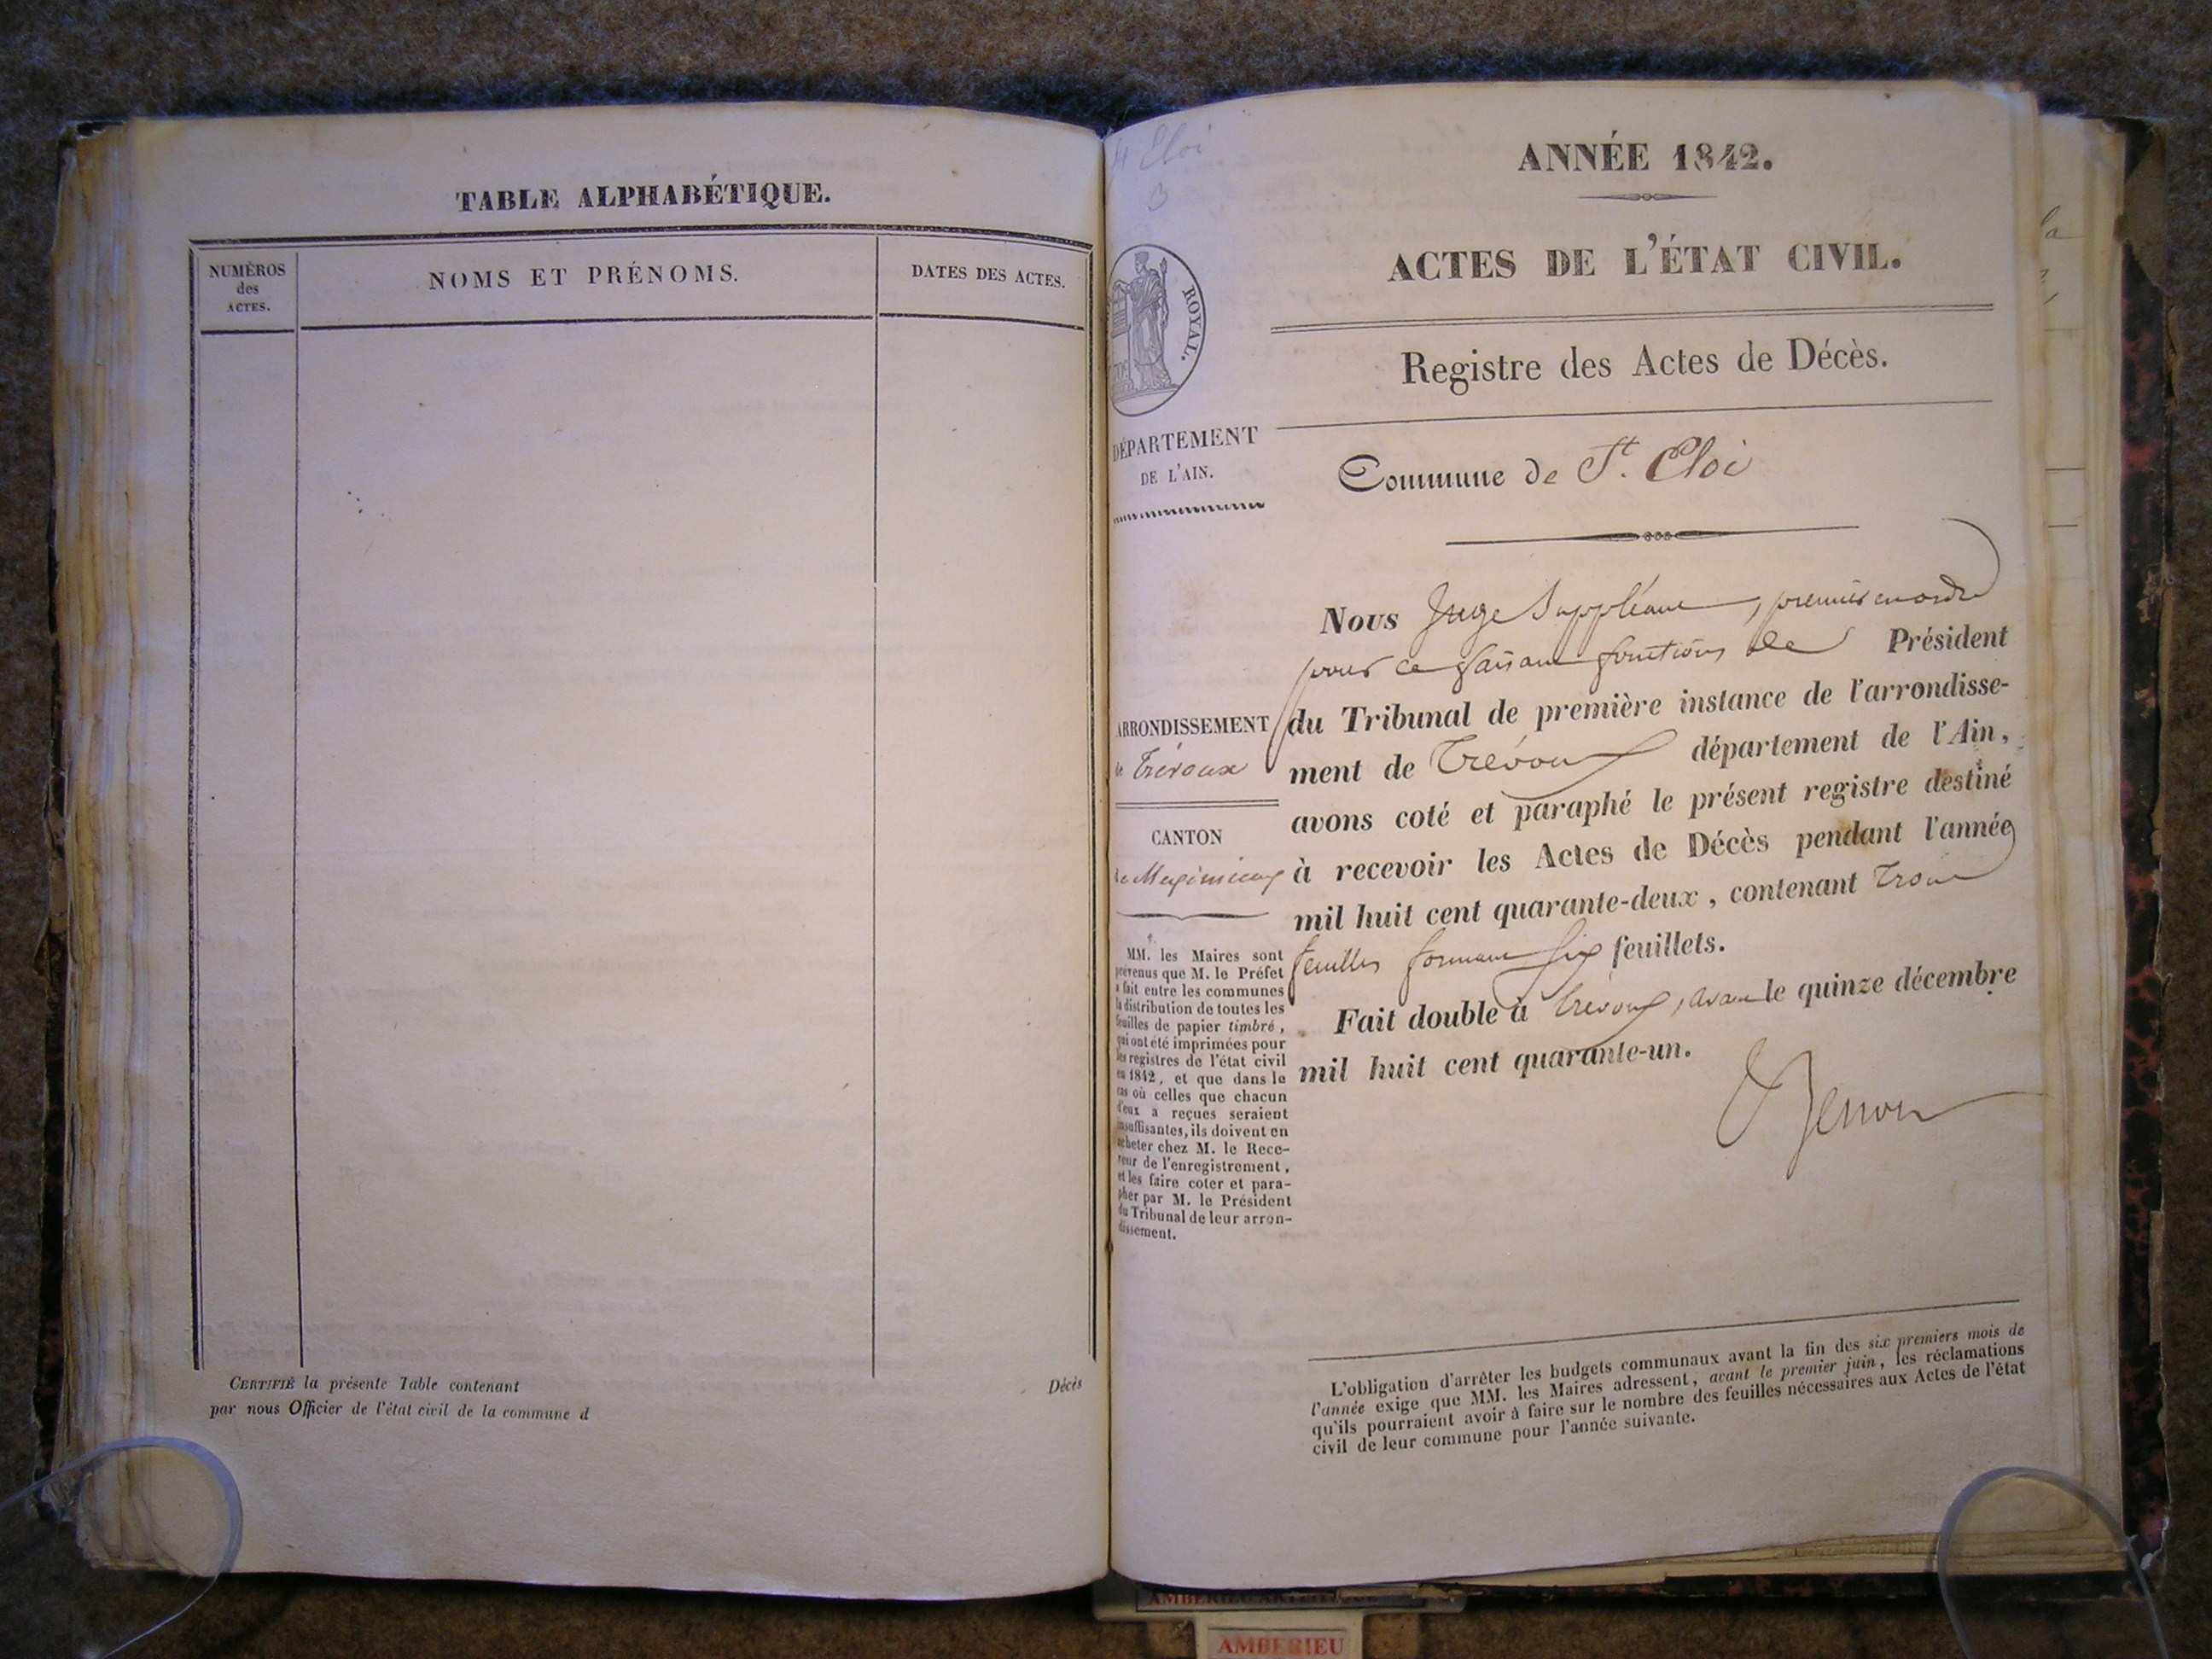 TABLE ALPHABÉTIQUE.
NUMÉROS
des
ACTES.
NOMS ET PRÉNOMS.
DATES DES ACTES.
CERTIFIÉ la présente Table contenant
par nous Officier de l'état civil de la commune d
Décès
Eloi
3
ROYAL.
ANNÉE 1842.
ACTES DE L'ÉTAT CIVIL.
Registre des Actes de Décès.
DÉPARTEMENT
DE L'AIN.
Commune de St. Eloi
ARRONDISSEMENT
de Trévoux
CANTON
de Meximieux
MM. les Maires sont
prévenus que M. le Préfet
a fait entre les communes
la distribution de toutes les
feuilles de papier timbré,
qui ont été imprimées pour
les registres de l'état civil
en 1842, et que dans le
cas où celles que chacun
d'eux a reçues seraient
insuffisantes, ils doivent en
acheter chez M. le Rece-
veur de l'enregistrement,
et les faire coter et para-
pher par M. le Président
du Tribunal de leur arron-
dissement.
Nous Juge Suppléant, premier en ordre
pour ce faisant fonctions de Président
du Tribunal de première instance de l'arrondisse-
ment de Trévoux département de l'Ain,
avons coté et paraphé le présent registre destiné
à recevoir les Actes de Décès pendant l'année
mil huit cent quarante-deux, contenant trois
feuilles formant six feuillets.
Fait double à Trévoux, avant le quinze décembre
mil huit cent quarante-un.
L'obligation d'arrêter les budgets communaux avant la fin des six premiers mois de
l'année exige que MM. les Maires adressent, avant le premier juin, les réclamations
qu'ils pourraient avoir à faire sur le nombre des feuilles nécessaires aux Actes de l'état
civil de leur commune pour l'année suivante.
AMBERIEU